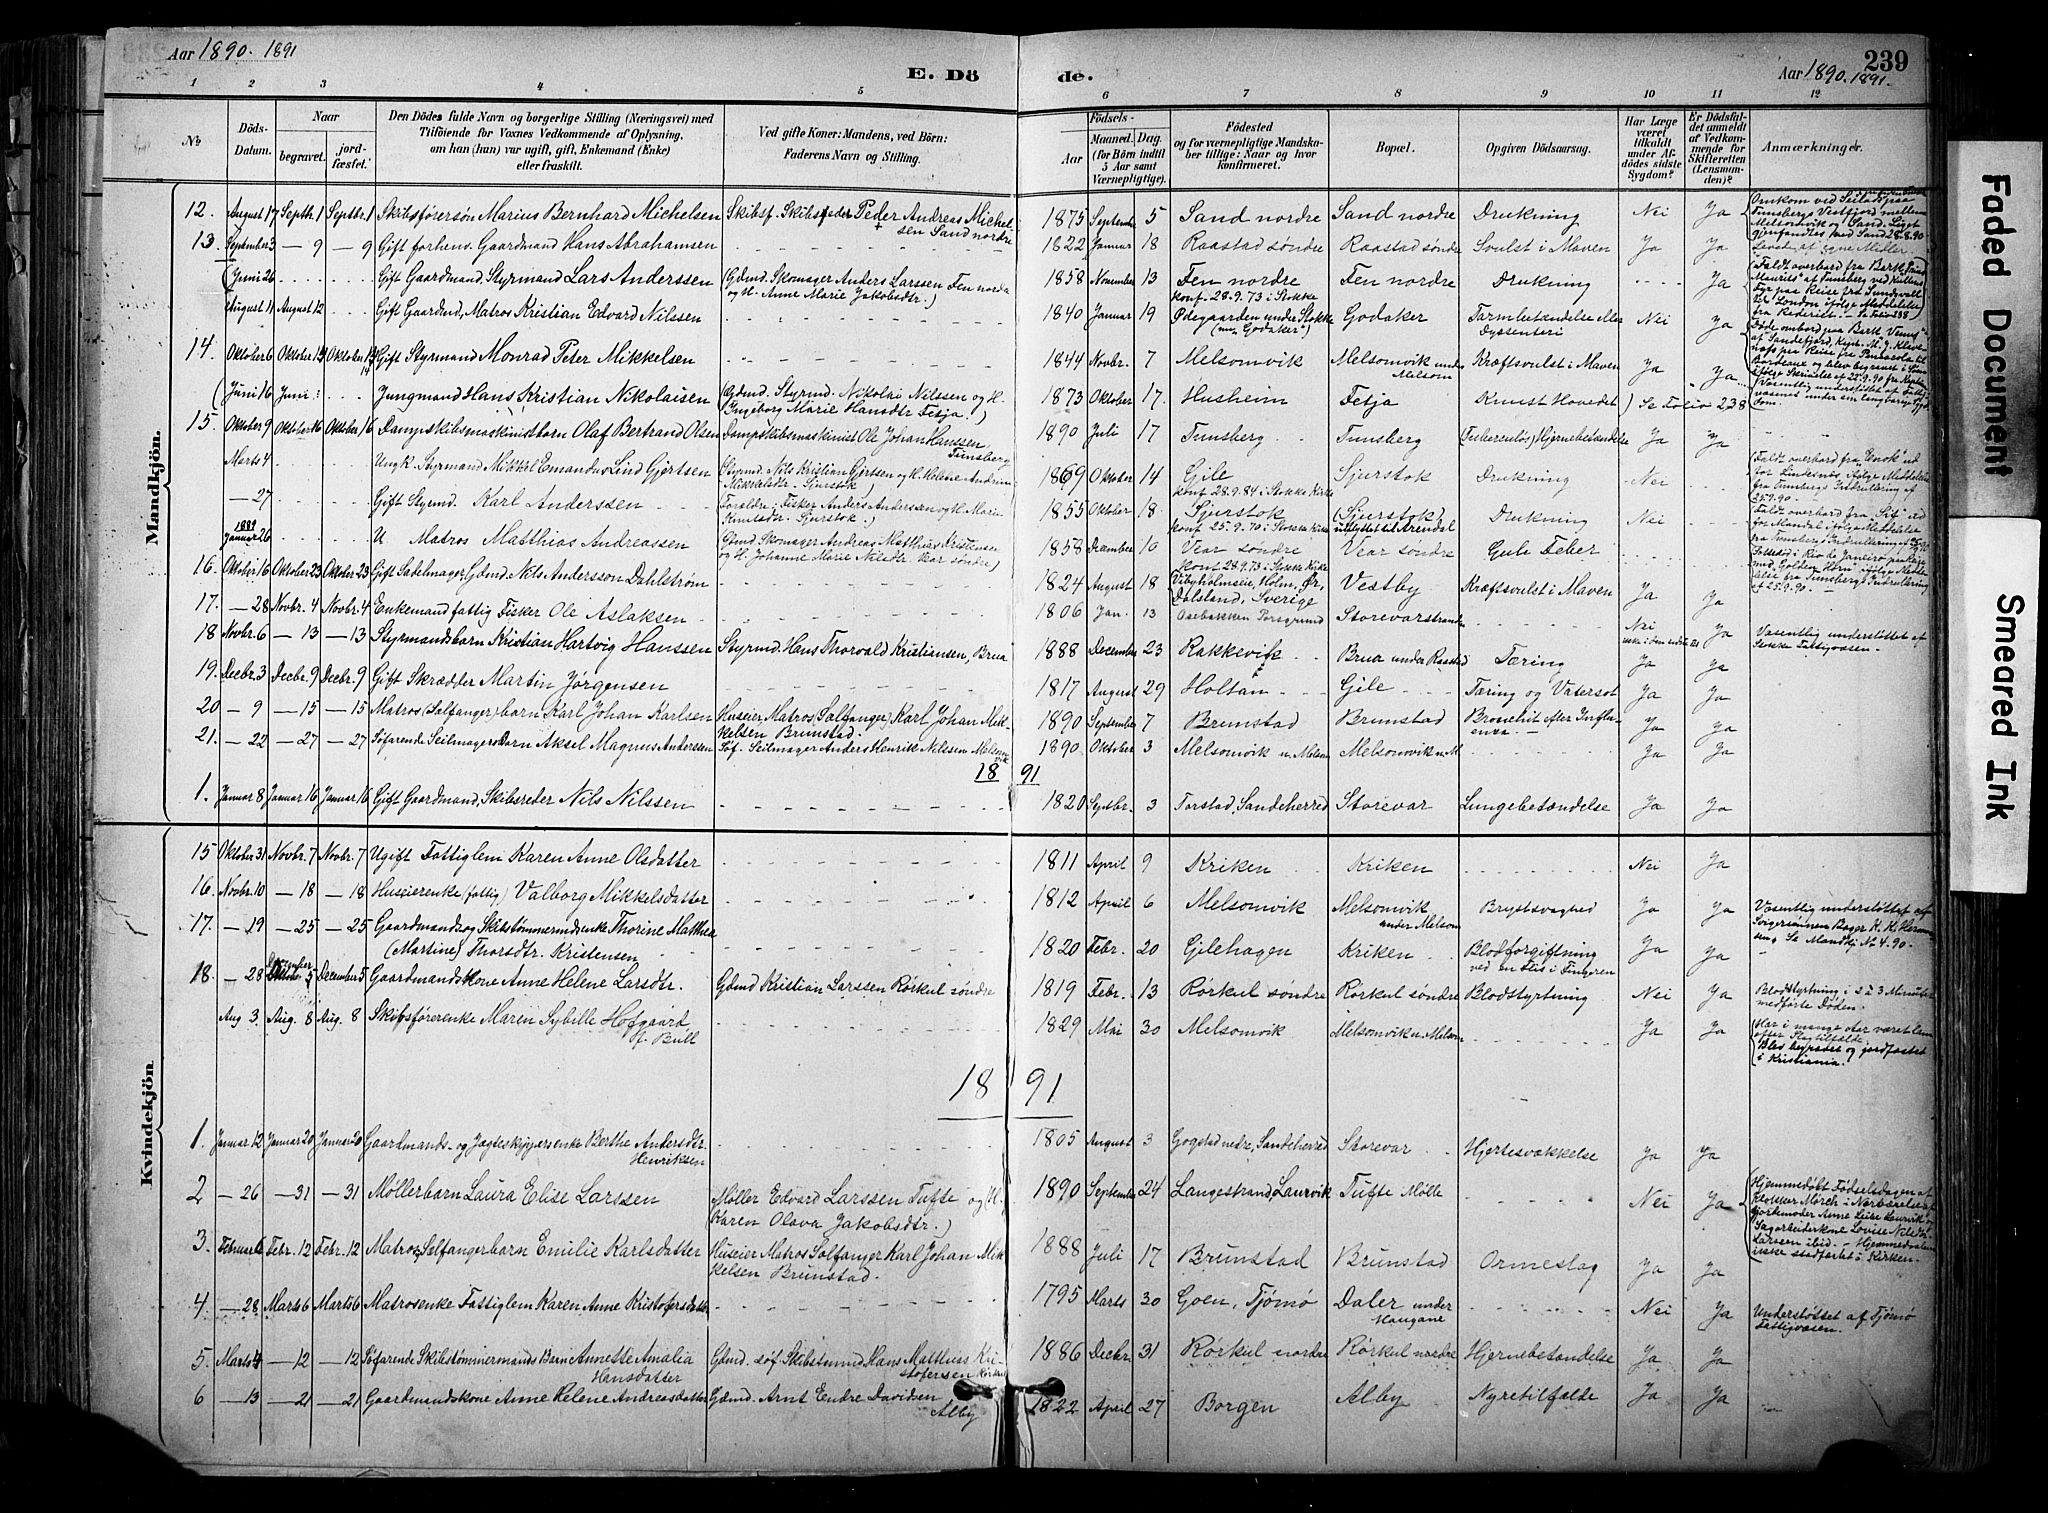 Aar 1890. 1891
E. Dö
de.
239
Aar 1890. 1891.
1 2 3 4 5 6 7 8 9 10 11 12
No
Döds-Datum.
Naar
begravet.
jordfæstet.
Den Dödes fulde Navn og borgerlige Stilling (Næringsvei) med
Tilföiende for Voxnes Vedkommende af Oplysning,
om han (hun) var ugift, gift, Enkemand (Enke)
eller fraskilt.
Ved gifte Koner: Mandens, ved Börn:
Faderens Navn og Stilling.
Födsels-
Aar
Maaned. Dag.
(for Börn indtil
5 Aar samt
Værnepligtige).
Födested
og for værnepligtige Mandskaber tillige: Naar og hvor
konfirmeret.
Bopæl.
Opgiven Dödsaarsag.
Har Læge
været
tilkaldt
under Afdödes sidste
Sygdom?
Er Dödsfaldet anmeldt
af Vedkommende for
Skifteretten
(Lensmanden)?
Anmærkninger.
Mandkjön.
12. August 17 Septbr. 1 Septbr. 1 Skibsförersön Marius Bernhard Michelsen Skibsf. Skibsreder Peder Andreas Michelsen Sand nordre 1875 September 5 Sand nordre Sand nordre Drukning Nei Ja
13. September 3 — 9 — 9 Gift forhens. Gaardmand Hans Abrahamsen 1822 Januar 18 Raastad söndre Raastad söndre Svulst i Maven Ja Ja
(Juni 26 Gift Gaardmand Styrmand Lars Anderssen (Gdmd. Skomager Anders Larssen Fen nordre og H. Anne Marie Jakobsdtr.) 1858 November 13 Fen nordre konf. 28.9.73 i Stokke Fen nordre Drukning Ja
(August 11 August 12 Gift Gaardmd, Matros Kristian Edvard Nilssen 1840 Januar 19 Ødegaarden under Stokke (nu Godaker) Godaker Tarmbetændelse eller Dyssenteri Nei Ja
14. Oktober 6 Oktober 14 Oktober 14 Gift Styrmand Monrad Peter Mikkelsen 1844 Novbr. 7 Melsomvik Melsomvik under Melsom Kræftsvulst i Maven Ja Ja
(Juni 16 Juni Jungmand Hans Kristian Nikolaisen (Gdmd. Styrmd. Nikolai Nilssen og H. Ingeborg Marie Hansdtr Fetja) 1873 Oktober 17. Husheim Fetja Knust Hovedet ) Se Folio 238
15. Oktober 9 Oktober 16 Oktober 16 Dampskibsmaskinistbarn Olaf Bertrand Olsen Dampskibsmaskinist Ole Johan Hanssen Tunsberg 1890 Juli 17 Tunsberg Tunsberg (Tuberculös) Hjernebetændelse Ja Ja
Marts 4 Ungk. Styrmand Mikkel Emandus Lind Gjertsen (Styrmd. Nils Kristian Gjertsen og H. Helene Andrine Mikkelsdtr. Sjurstok 1869 Oktober 14 Gile konf 28.9.84 i Stokke Kirke Sjurstok Drukning Nei
— 27 Gift Styrmd. Karl Anderssen Foreldre: Fisker Anders Anderssen og H. Maria Knutsdtr. Sjurstok.) 1855 Oktober 18. Sjurstok konf. 25.9.70 i Stokke Kirke (Sjurstok) utflyttet til Arendal Drukning Nei
1889 Januar 26 U Matros Matthias Andreassen Gdmd Skomager Andreas Matthias Kristensen og H. Johanne Marie Nilsdtr Vear söndre) 1858 December 10 Vear söndre konf 28.9.73 i Stokke Kirke Vear söndre Gule Feber
16. Oktober 16 Oktober 23 Oktober 23 Gift Sadelmager, Gdmd. Nils Andersson Dahlström 1824 August 18 Dalsland, Sverige Vestby Kræftsvulst i Maven Ja Ja
17. — 28 Novbr. 4 Novbr. 4 Enkemand fattig Fisker Ole Aslaksen 1806 Jan. 13 Aasebakken Porsgrund Storevarstranden Nei Ja Væsentlig understöttet af Stokke Fattigvæsen.
18 Novbr. 6 — 13 — 13 Styrmandsbarn Kristian Hartvig Hanssen Styrmd. Hans Thorvald Kristiansen, Brua 1888 December 23 Rakkevik Brua under Raastad Tæring Ja Ja
19. Decbr. 3 Decbr. 9 Decbr. 9 Gift Skrædder Martin Jörgensen 1817 August 29 Holtan Gile Tæring og Vatersot Ja Ja
20 — 9 — 15 — 15 Matros (Sælfanger) barn Karl Johan Karlsen Huseier Matros (Sælfanger) Karl Johan Mikkelsen Brunstad 1890 September 7 Brunstad Brunstad Bronchit efter Influenza. Ja Ja
21. — 22 — 27 — 27 Söfarende Seilmagers Barn Aksel Magnus Andersen Söf. Seilmager Anders Henrik Nilssen Melsomvik 1890. Oktober 3 Melsomvik u. Melsom Melsomvik u. M. Ja Ja
18 91
1. Januar 8 Januar 16 Januar 16 Gift Gaardmand, Skibsreder Nils Nilssen 1820 Septbr. 3 Torstad, Sandeherred Storevar Lungebetændelse Ja Ja
Kvindekjön.
15 Oktober 31 Novbr. 7 Novbr. 7 Ugift Fattiglem Karen Anne Olsdatter 1811 April 9 Kriken Kriken Nei Ja
16. Novbr. 10 — 18 — 18 Huseierenke (fattig) Valborg Mikkelsdatter 1812 April 6 Melsomvik Melsomvik under Melsom Brystsvaghed Ja Ja Væsentlig understöttet af Svigersönnen Bager K. K. Hermansen, Se Mandkj No 4. 90.
17. — 19 — 25 — 25 Gaardmands og Skibstömmermdsenke Thorine Mathea (Martine) Thorsdtr. Kristensen 1820 Febr. 20 Gilehagen Kriken Blodforgiftning ved en Flis i Fingeren Ja Ja
18. — 28 December 5 December 5 Gaardmandskone Anne Helene Larsdtr. Gdmd Kristian Larssen Rörkul söndre 1819 Febr. 13 Rörkul söndre Rörkul söndre Blodstyrtning Nei Ja Blodstyrtning i 2 à 3 Minutter medförte Döden.
Aug 3. Aug. 8 Aug. 8 Skibsförerenke Maren Sybille Hofgaard f. Bull 1829 Mai 30 Melsomvik Melsomvik u. Melsom Ja Ja (Har i mange Aar været lam efter Slagtilfælde. Blev begravet og jordfæstet i Kristiania.
18 91
1. Januar 12 Januar 20 Januar 20 Gaardmands- og Jagteskippersenke Berthe Andersdtr. Henriksen 1805 August 3 Gogstad nedre, Sandeherred Storevar Hjertesvækkelse Ja Ja
2 — 26 — 31 — 31 Möllerbarn Laura Elise Larssen (Möller Edvard Larssen Tufte og H. Karen Olava Jakobsdtr.) 1890 September 24 Langestrand, Laurvik Tufte Mölle Nei Ja
3. Februar 6 Febr. 12 Febr. 12 Matros Sælfangerbarn Emilie Karlsdatter Huseier Matros Sælfanger Karl Johan Mikkelsen Brunstad. 1888 Juli 17 Brunstad Brunstad Ormeslag Ja Ja
4. — 28 Marts 6 Marts 6 Matrosenke Fattiglem Karen Anne Kristofersdatter 1795 Marts 30 Goen, Tjömö Daler under Haugane Nei Ja Understöttet af Tjömö Fattigvæsen.
5. Marts 4 — 12 — 12 Söfarende Skibstömmermands Barn Annette Amalia Hansdatter Gdmd. söf. Skibstmmd Hans Matthias Kristofersen Rörkul 1886 Decbr. 31 Rörkul nordre Rörkul nordre Hjernebetændelse Ja Ja
6 — 13 — 21 — 21 Gaardmandskone Anne Helene Andreasdatter Gdmd. Arnt Endre Davidsen Alby 1822 April 27 Borgen Alby Nyretilfælde Ja Ja
Faded Document
Smeared Ink